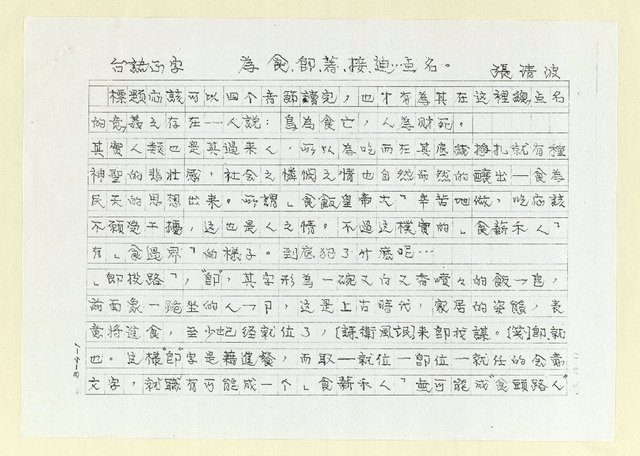 台誌正字 為食、即、著、接、迪……点名。 張清波
標題應該可以四个音節讀完,也才有為其在這裡点名
的意義之存在——人說:鳥為食亡,人為財死。
其實人類也是其過來人,所以為吃而在其底線掙扎就有種
神聖的悲壯感,社會之憐憫之情也自然而然的釀出—食為
民天的思想出來。所謂「食飯皇帝大」辛苦地做,吃應該
不願受干擾,這也是人之情。不過這樸實的「食薪禾人」
有「食過界」的樣子。到底犯了什麼呢…
「即找路」,"即",其字形為一碗又白又香噴々的飯一皀,
前面象一跪坐的人—卩,這是上古時代,家居的姿態,表
意將進食,至少也已經就位了,[詩衛風氓]來即我謀。[箋]即就
也。這樣"即"字是藉進餐,而取—就位—部位—就任的念意
文字,就職有可能成一个「食薪禾人」並可能成"食頭路人"